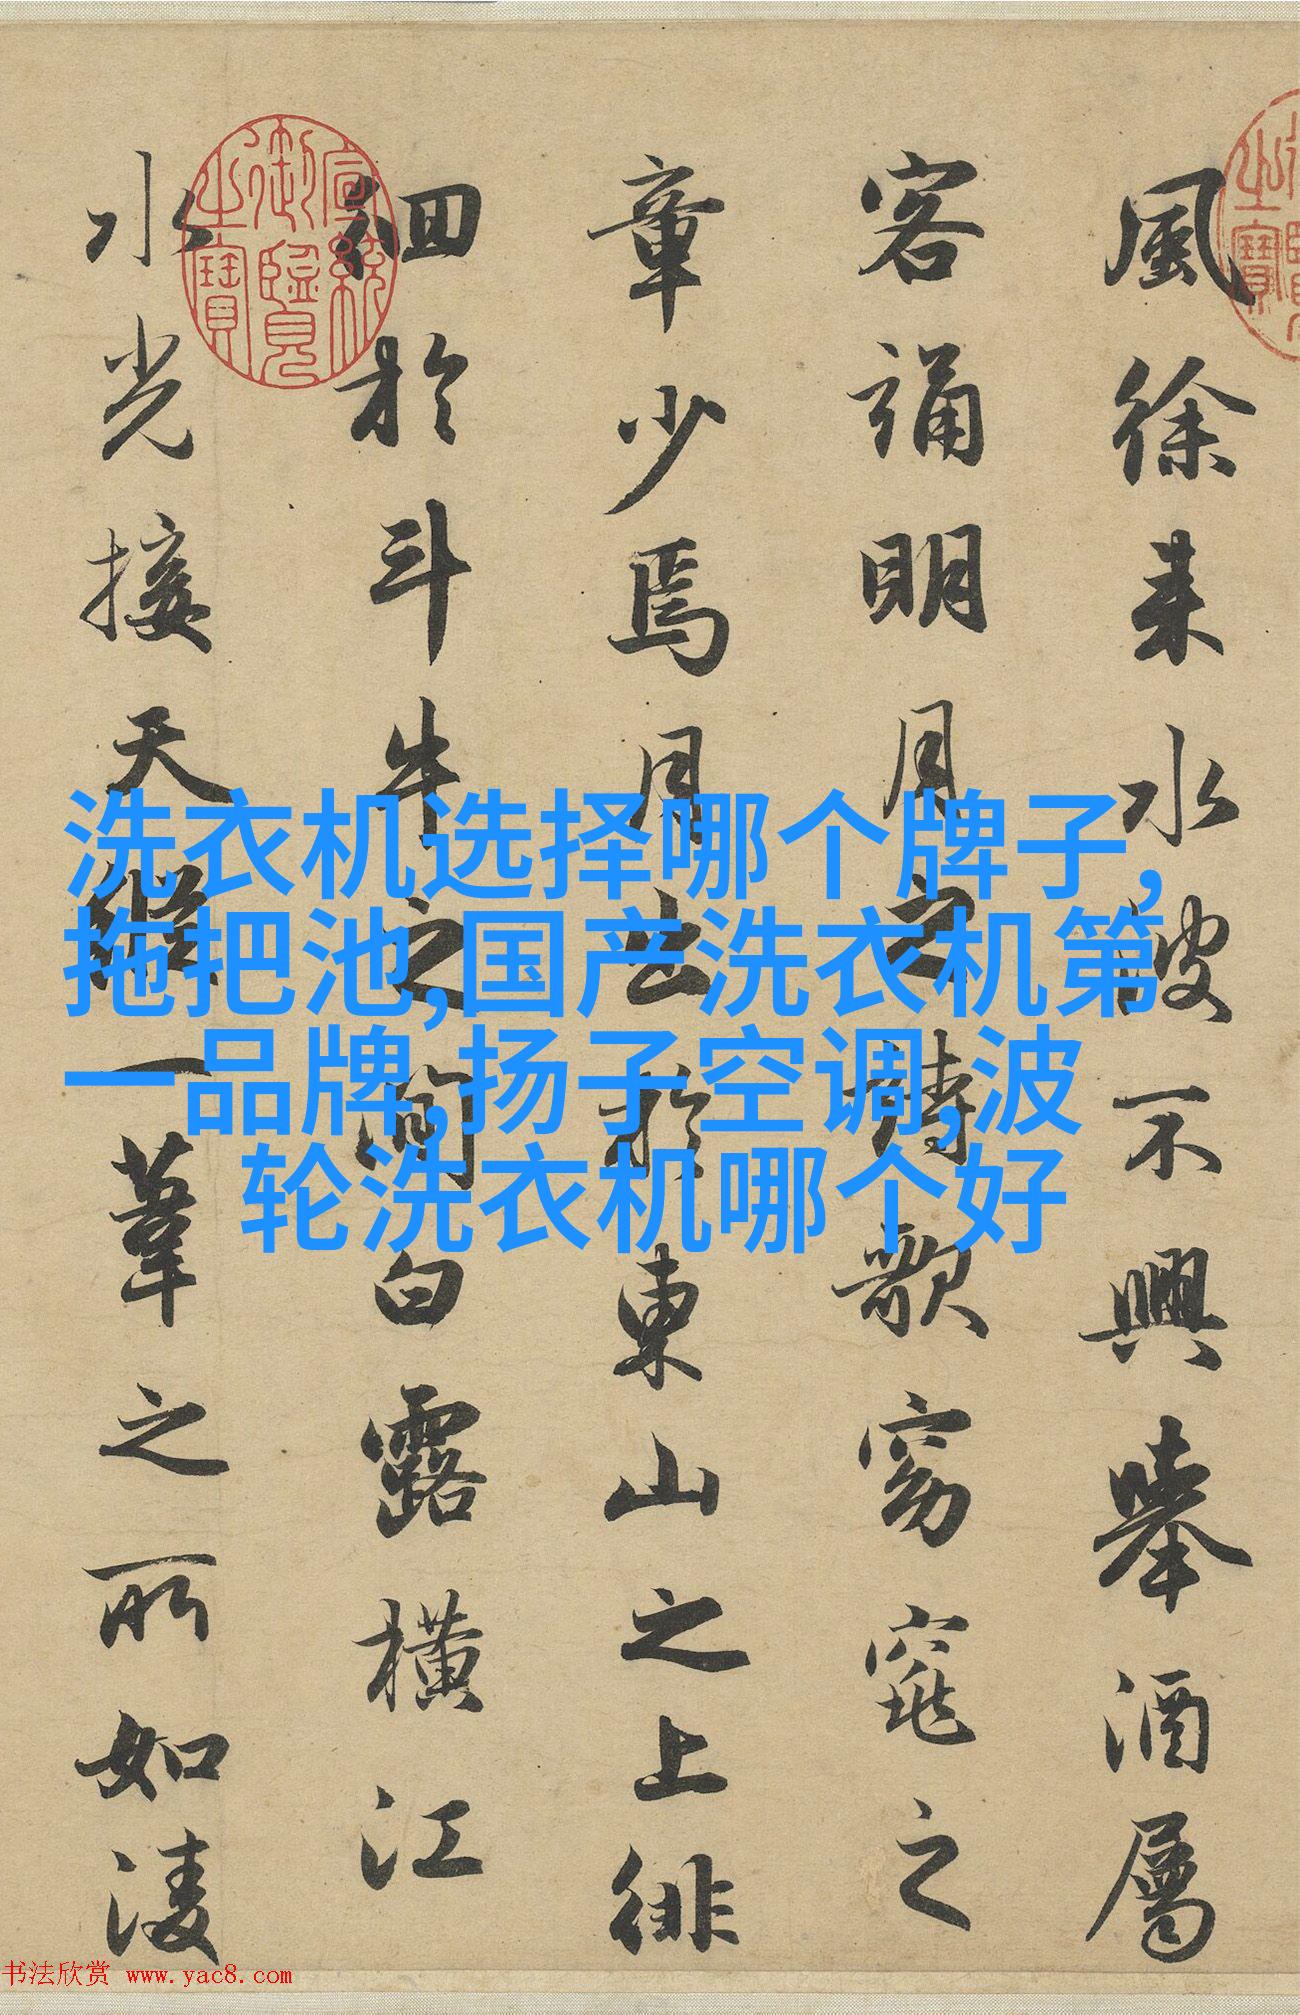 風徐来水波不興舉酒屬
客誦明月之詩歌窈窕之
章少焉月出於東山之上徘
徊於斗牛之間白露橫江
水光接天縱一葦之所如淩
宣統御覽之寶
洗衣机选择哪个牌子,
拖把池,国产洗衣机第
一品牌,扬子空调,波
轮洗衣机哪个好
书法欣赏 www.yac8.com